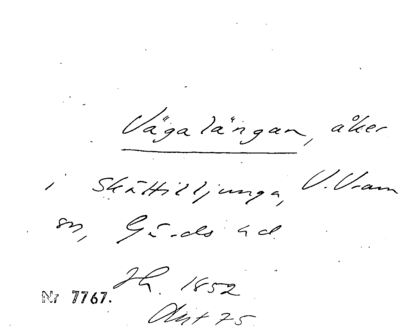 Vägalängan, åker
i Skättilljunga, V. Vram
sn, Gärds hd
Jh. 1852
Nr 7767. Akt 75